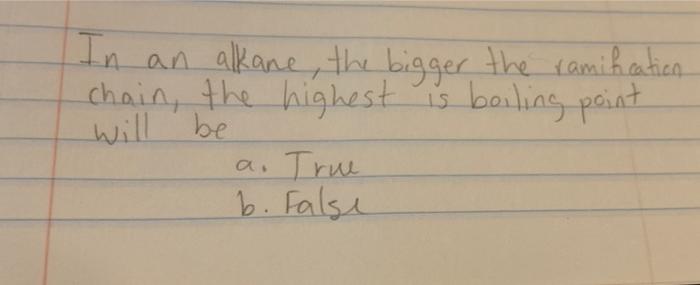 In an alkane, the bigger the ramification
chain, the highest is boiling point
will be
a. True
b. False